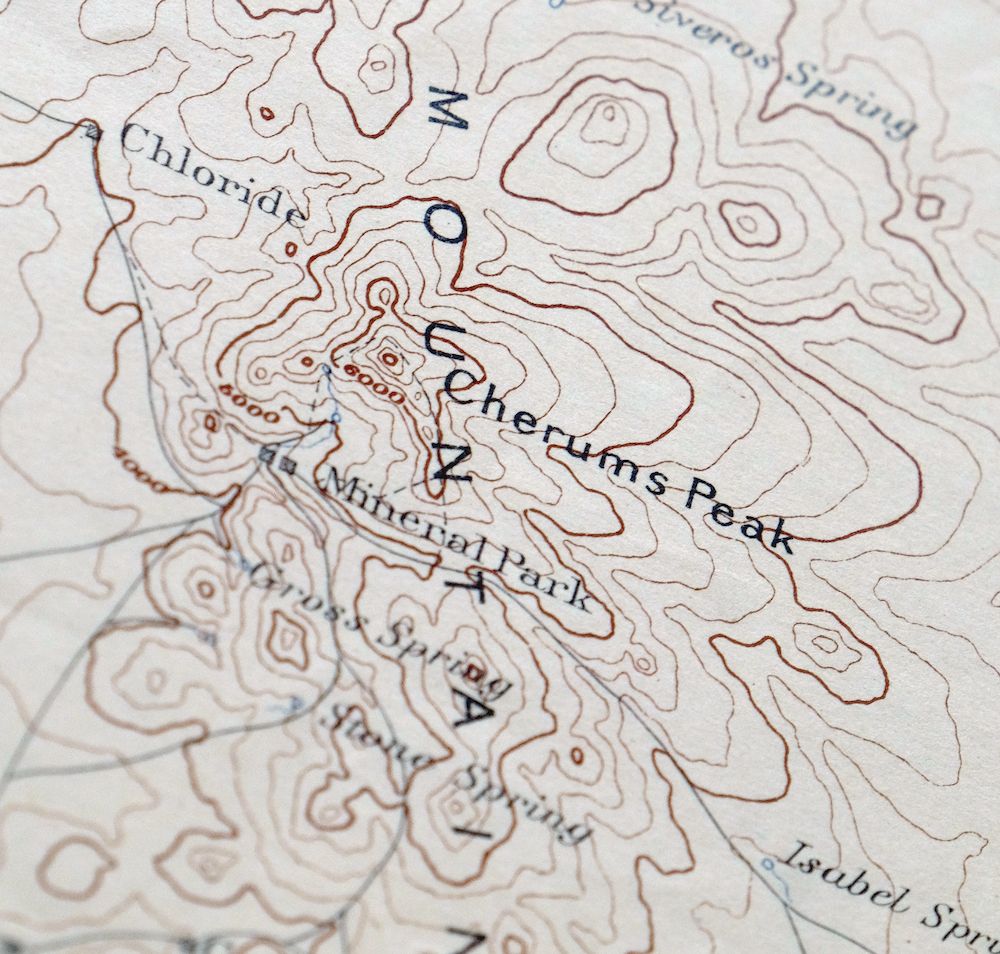 Siveros Spring
Chloride
MOUNTAIN
6000
5000
Cherums Peak
4000
Mineral Park
Gross Spring
Stone Spring
Isabel Spr